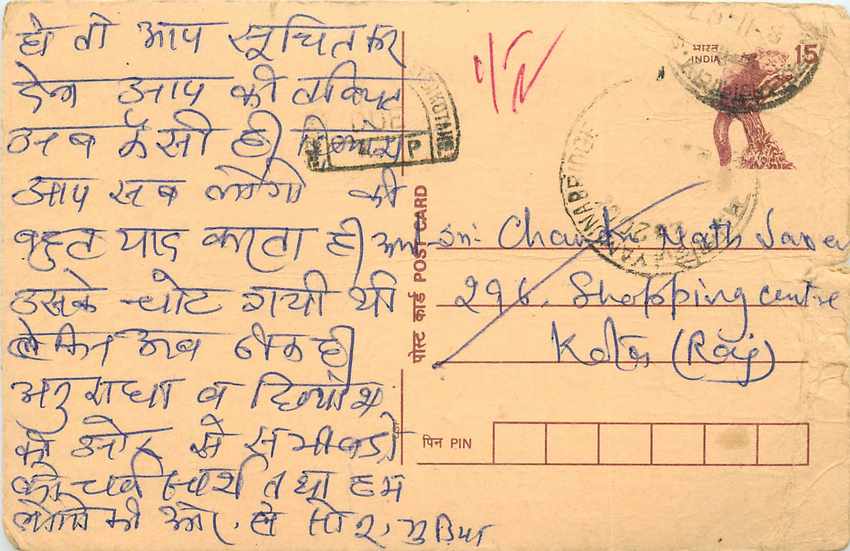 हो तो आप सूचित कर
देना आप की तबियत
अब कैसी ही
आप सब लोगो की
बहुत याद करता ही
उसके चोट गयी थी
लेकिन अब ठीक ही
अनुराधा व दिव्यांश
की ओर से सभी बडो
को चर्ण स्पर्श तथा हम
लोगो की ओर से
भारत
INDIA
15
पोस्ट कार्ड POST CARD
Nath
296, Shopping centre
Kota (Raj)
पिन PIN